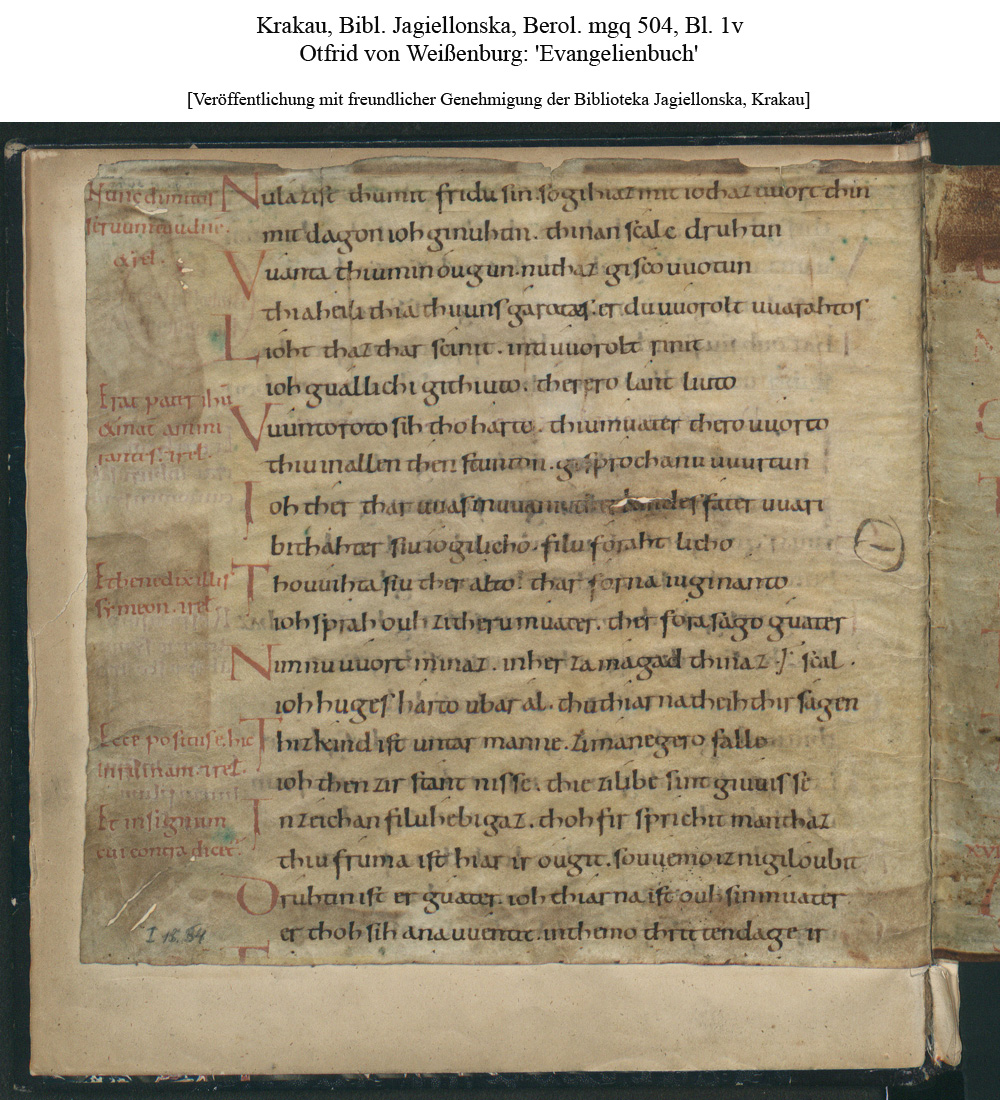 Krakau, Bibl. Jagiellonska, Berol. mgq 504, Bl. 1v
Otfrid von Weißenburg: 'Evangelienbuch'
[Veröffentlichung mit freundlicher Genehmigung der Biblioteka Jagiellonska, Krakau]
Nunc dimittis
seruum tuu dne.
& rel.
Nu lazist thu mit fridu sin. so gihiaz mir io thaz uuort thin
mit dagon ioh ginuhtin. thinan scalc druhtin
Vuanta thiu min ougun. nu thaz giscouuotun
thia heili thia thu uns garotas. er du uuorolt uuarahtos
Lioht thaz thar scinit. inti uuorolt rinit
ioh guallichi githiuto. therero lant liuto
Erat pater ihu
& mat
Vuuntoroto sih tho harto. thiu muater thero uuorto
thiu in allen then stunton. gisprochanu uuurtun
Ioh ther thar uuas in kindes fater uuari
bithahter siu iogilicho. filu foraht licho
Et benedix illis
symeon. & rel.
Tho uuihta siu ther alto. thar forna iuginanto
ioh sprah ouh zi theru muater. ther forasago guater
Nim nu uuort minaz. in herza magad thinaz scal.
ioh huges harto ubar al. thu thiarna theih thir sagen
Ecce positus e. hic
in ruinam. & rel.
Thiz kind ist untar manne. zi manegero falle
ioh then zir stantnisse. thie zi libe sint giuuisse
Et in signum
cui contradicet.
In zeichan filu hebigaz. thoh fir sprichit man thaz
thiu fruma ist hiar ir ougit. so uuemo iz nigiloubit
Druhtin ist er guater. ioh thiarna ist ouh sin muater
er thoh sih ana uuentit. in themo thritten dage ir
I 15. 34